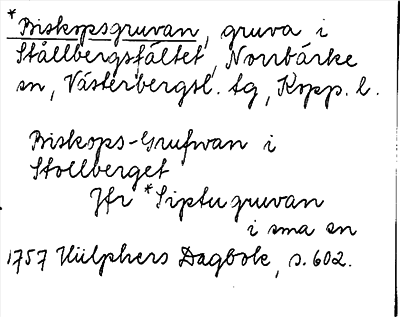 *Biskopsgruvan, gruva i
Stållbergsfältet, Norrbärke
sn, Västerbergsl. tg, Kopp. l.
Biskops-Grufwan i
Stollberget
Jfr *Siptugruvan
i sma sn
1757 Hülphers Dagbok, s. 602.